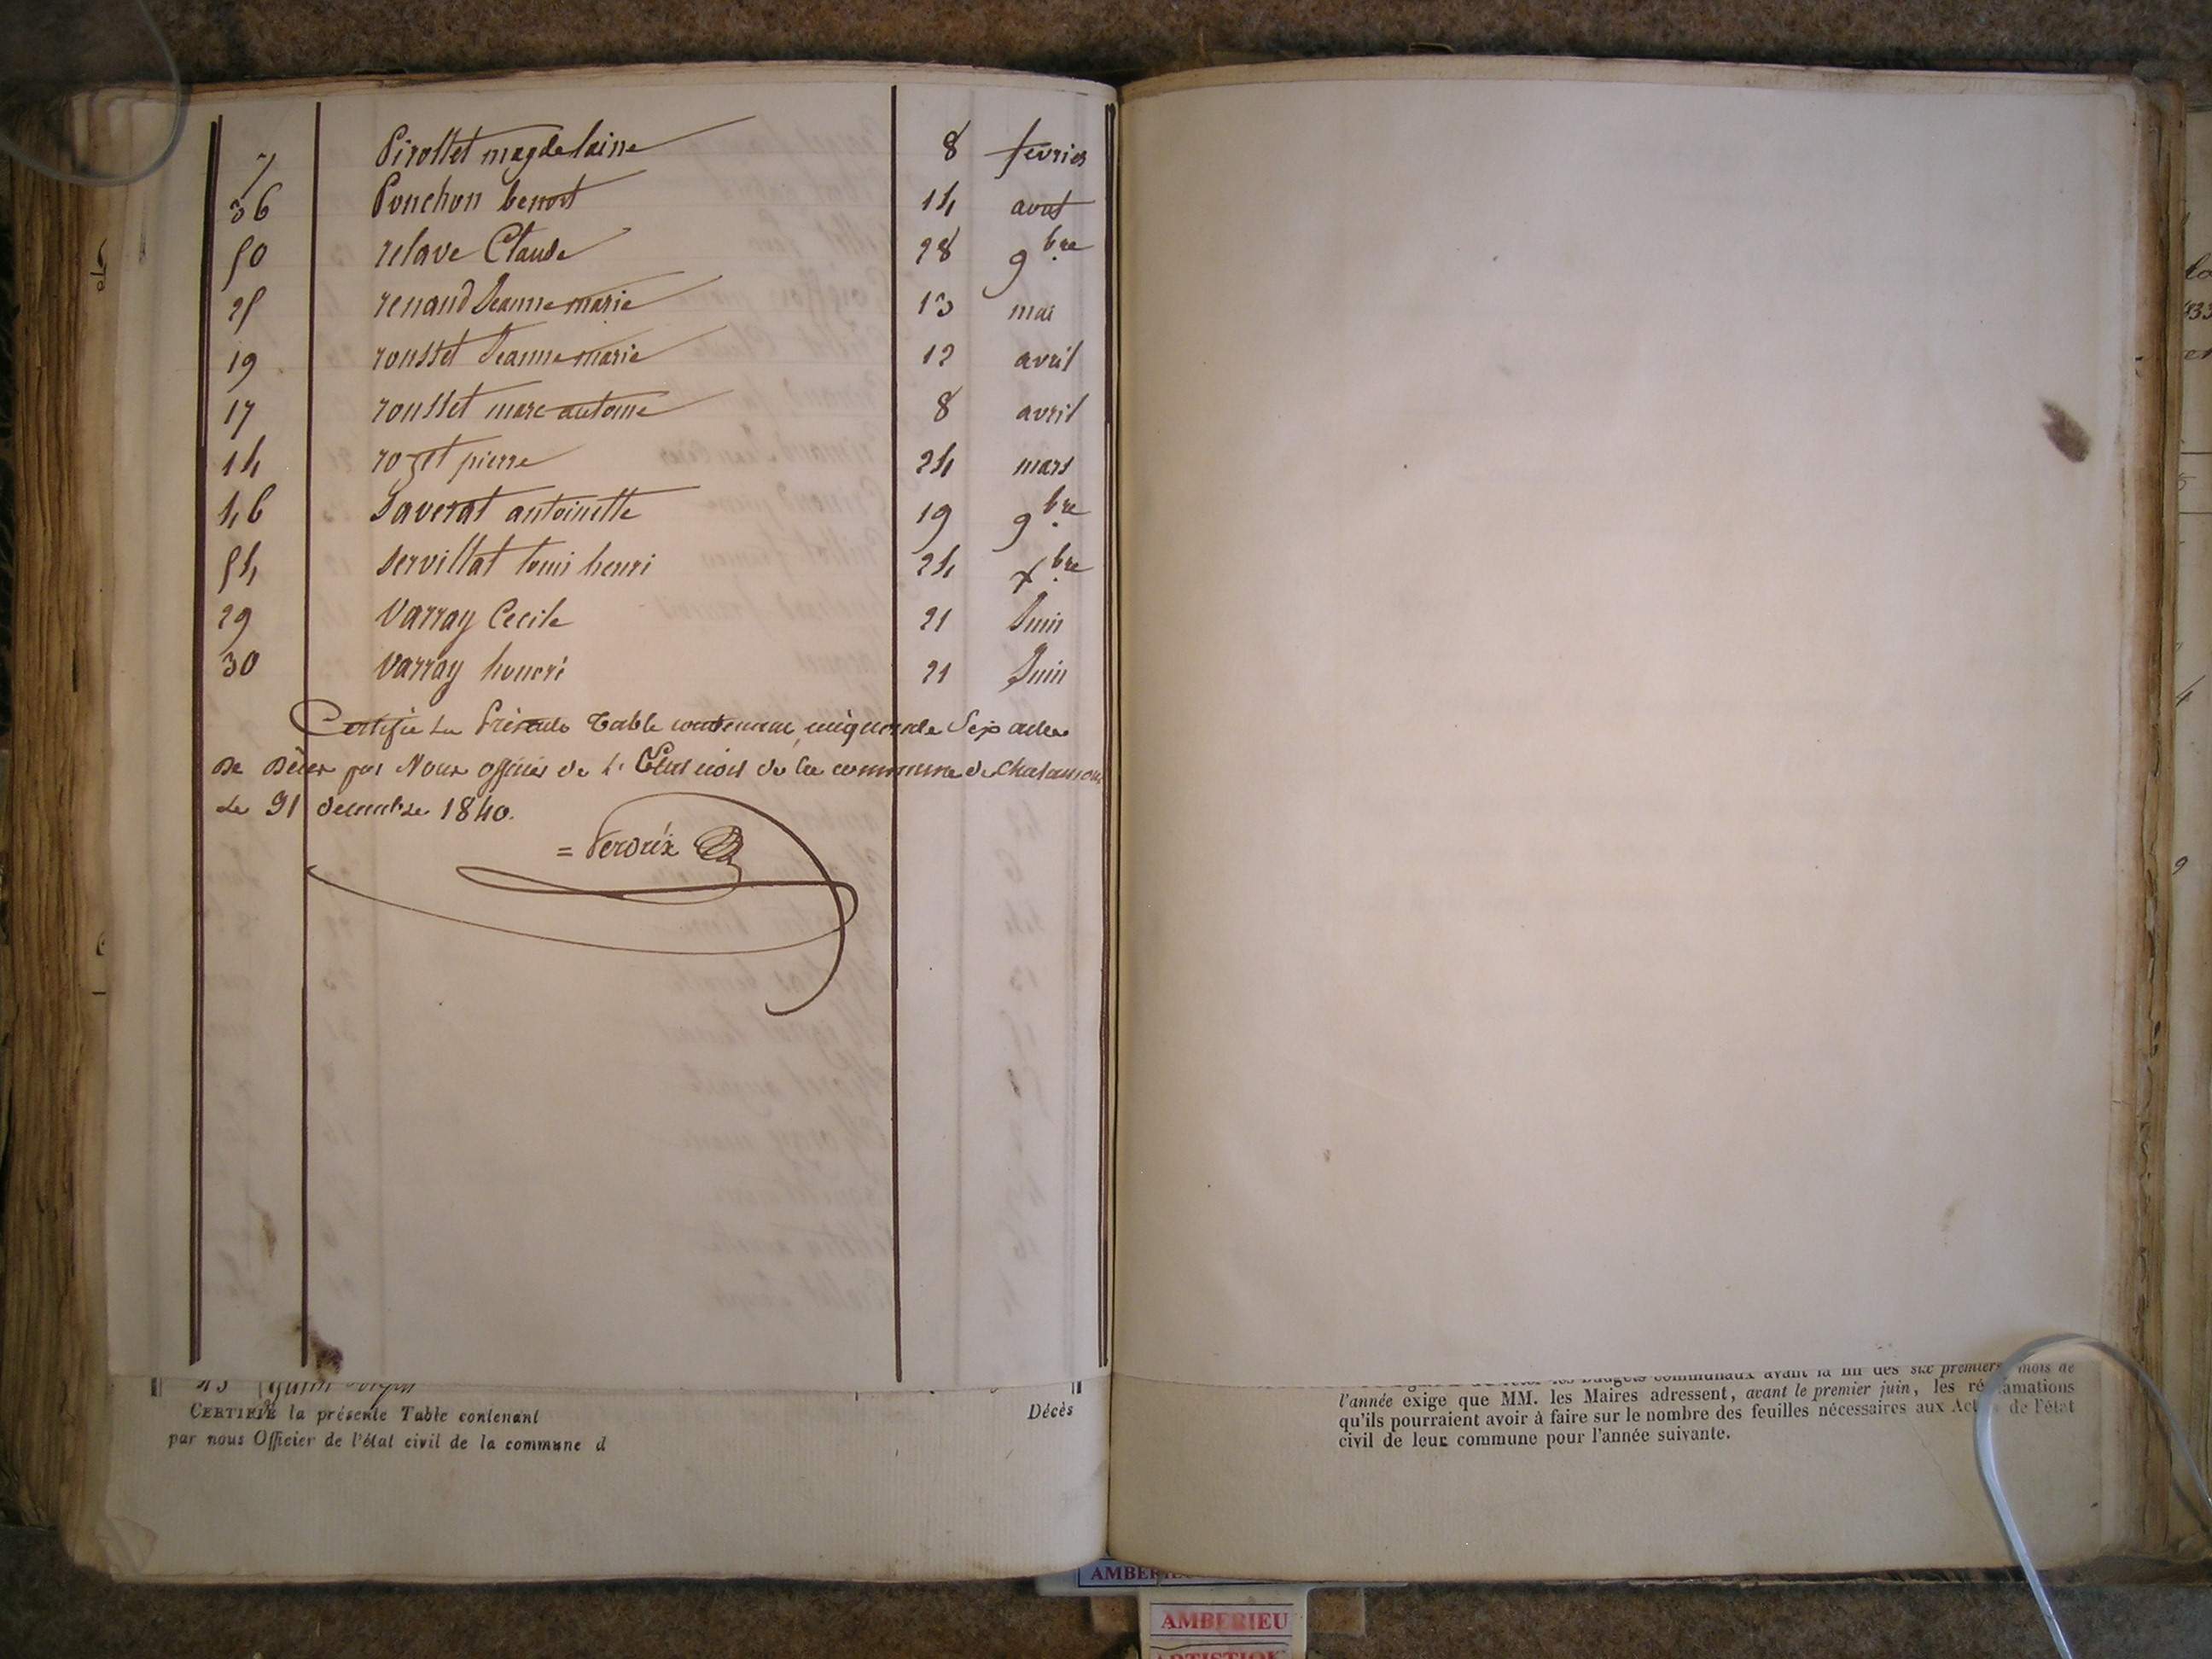 7 Pirollet magdelaine 8 fevrier
36 Ponchon benoit 14 aout
50 relave Claude 28 9bre
25 renaud Jeanne marie 13 mai
19 rousset Jeanne marie 12 avril
17 rousset marc antoine 8 avril
14 rozet pierre 24 mars
46 Saverat antoinette 19 9bre
54 Servillat louis henri 24 xbre
29 Varray Cecile 21 Juin
30 Varray honoré 21 Juin
Certifié La Présente Table contenant cinquante Six actes
De Décès par Nous officier de l'Etat civil de la commune de
Le 31 décembre 1840.
CERTIFIÉ la présente Table contenant Décès
par nous Officier de l'état civil de la commune d
budgets communaux avant la fin des six premiers mois de
l'année exige que MM. les Maires adressent, avant le premier juin, les réclamations
qu'ils pourraient avoir à faire sur le nombre des feuilles nécessaires aux Actes de l'état
civil de leur commune pour l'année suivante.
AMBERIEU